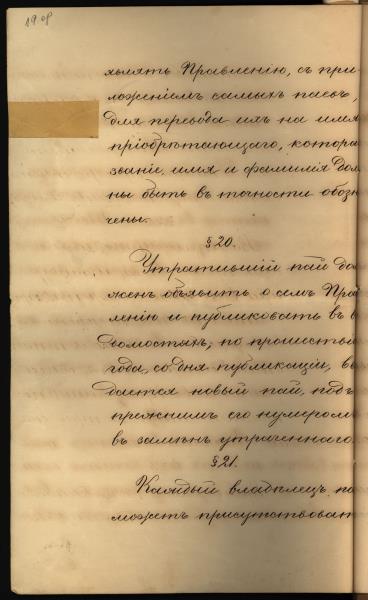 19 об
являть Правленію, съ при-
ложеніемъ самыхъ паевъ,
для перевода ихъ на имя
пріобрѣтающаго, котора
званіе, имя и фамилія дол
ны быть въ точности обозн
чены.
§ 20.
Утратившій пай дол
женъ объявить о семъ Пра
ленію и публиковать въ в
домостяхъ; по прошестві
года, со дня публикаціи, вы
дается новый пай, подъ
прежнимъ его нумеромъ
въ замѣнъ утраченнаго.
§ 21.
Каждый владѣлецъ па
можетъ присутствоват